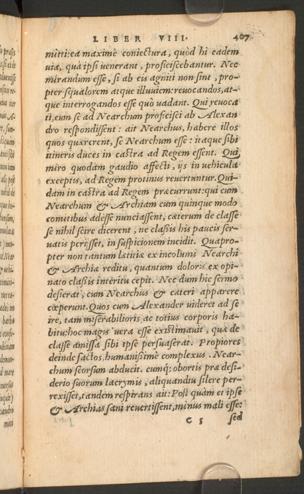 LIBER VIII. 407
mitti: ea maximè coniectura, quòd hi eadem
uia, quà ipsi uenerant, proficiscebantur. Nec
mirandum esse, si ab eis agniti non sint, pro-
pter squalorem atque illuuiem: reuocandos, at-
que interrogandos esse quò uadant. Qui reuoca
ti, cum se ad Nearchum proficisci ab Alexan
dro respondissent: ait Nearchus, habere illos
quos quærerent, se Nearchum esse: itaque sibi
itineris duces in castra ad Regem essent. Qui
miro quodam gaudio affecti, ijs in uehicula
exceptis, ad Regem protinus reuertuntur. Qui-
dam in castra ad Regem præcurrunt: qui cum
Nearchum & Archiam cum quinque modo
comitibus adesse nunciassent, cæterum de classe
se nihil scire dicerent, ne classis his paucis ser-
uatis perijsset, in suspicionem incidit. Quapro-
pter non tantum lætitiæ ex incolumi Nearchi
& Archiæ reditu, quantum doloris ex opi-
nato classis interitu cepit. Nec dum hic sermo
desierat, cum Nearchus & cæteri apparere
cœperunt. Quos cum Alexander uideret ad se
ire, tam miserabilioris ac totius corporis ha-
bitu: hoc magis uera esse existimauit, quæ de
classe amissa sibi ipse persuaserat. Propiores
deinde factos, humanissimè complexus. Near-
chum seorsum abducit. cumq; obortis præ desi-
derio suorum lacrymis, aliquandiu silere per-
rexisset, tandem respirans ait: Post quàm et ipse
& Archias sani reuertissent, minus mali esse:
C 5 sed